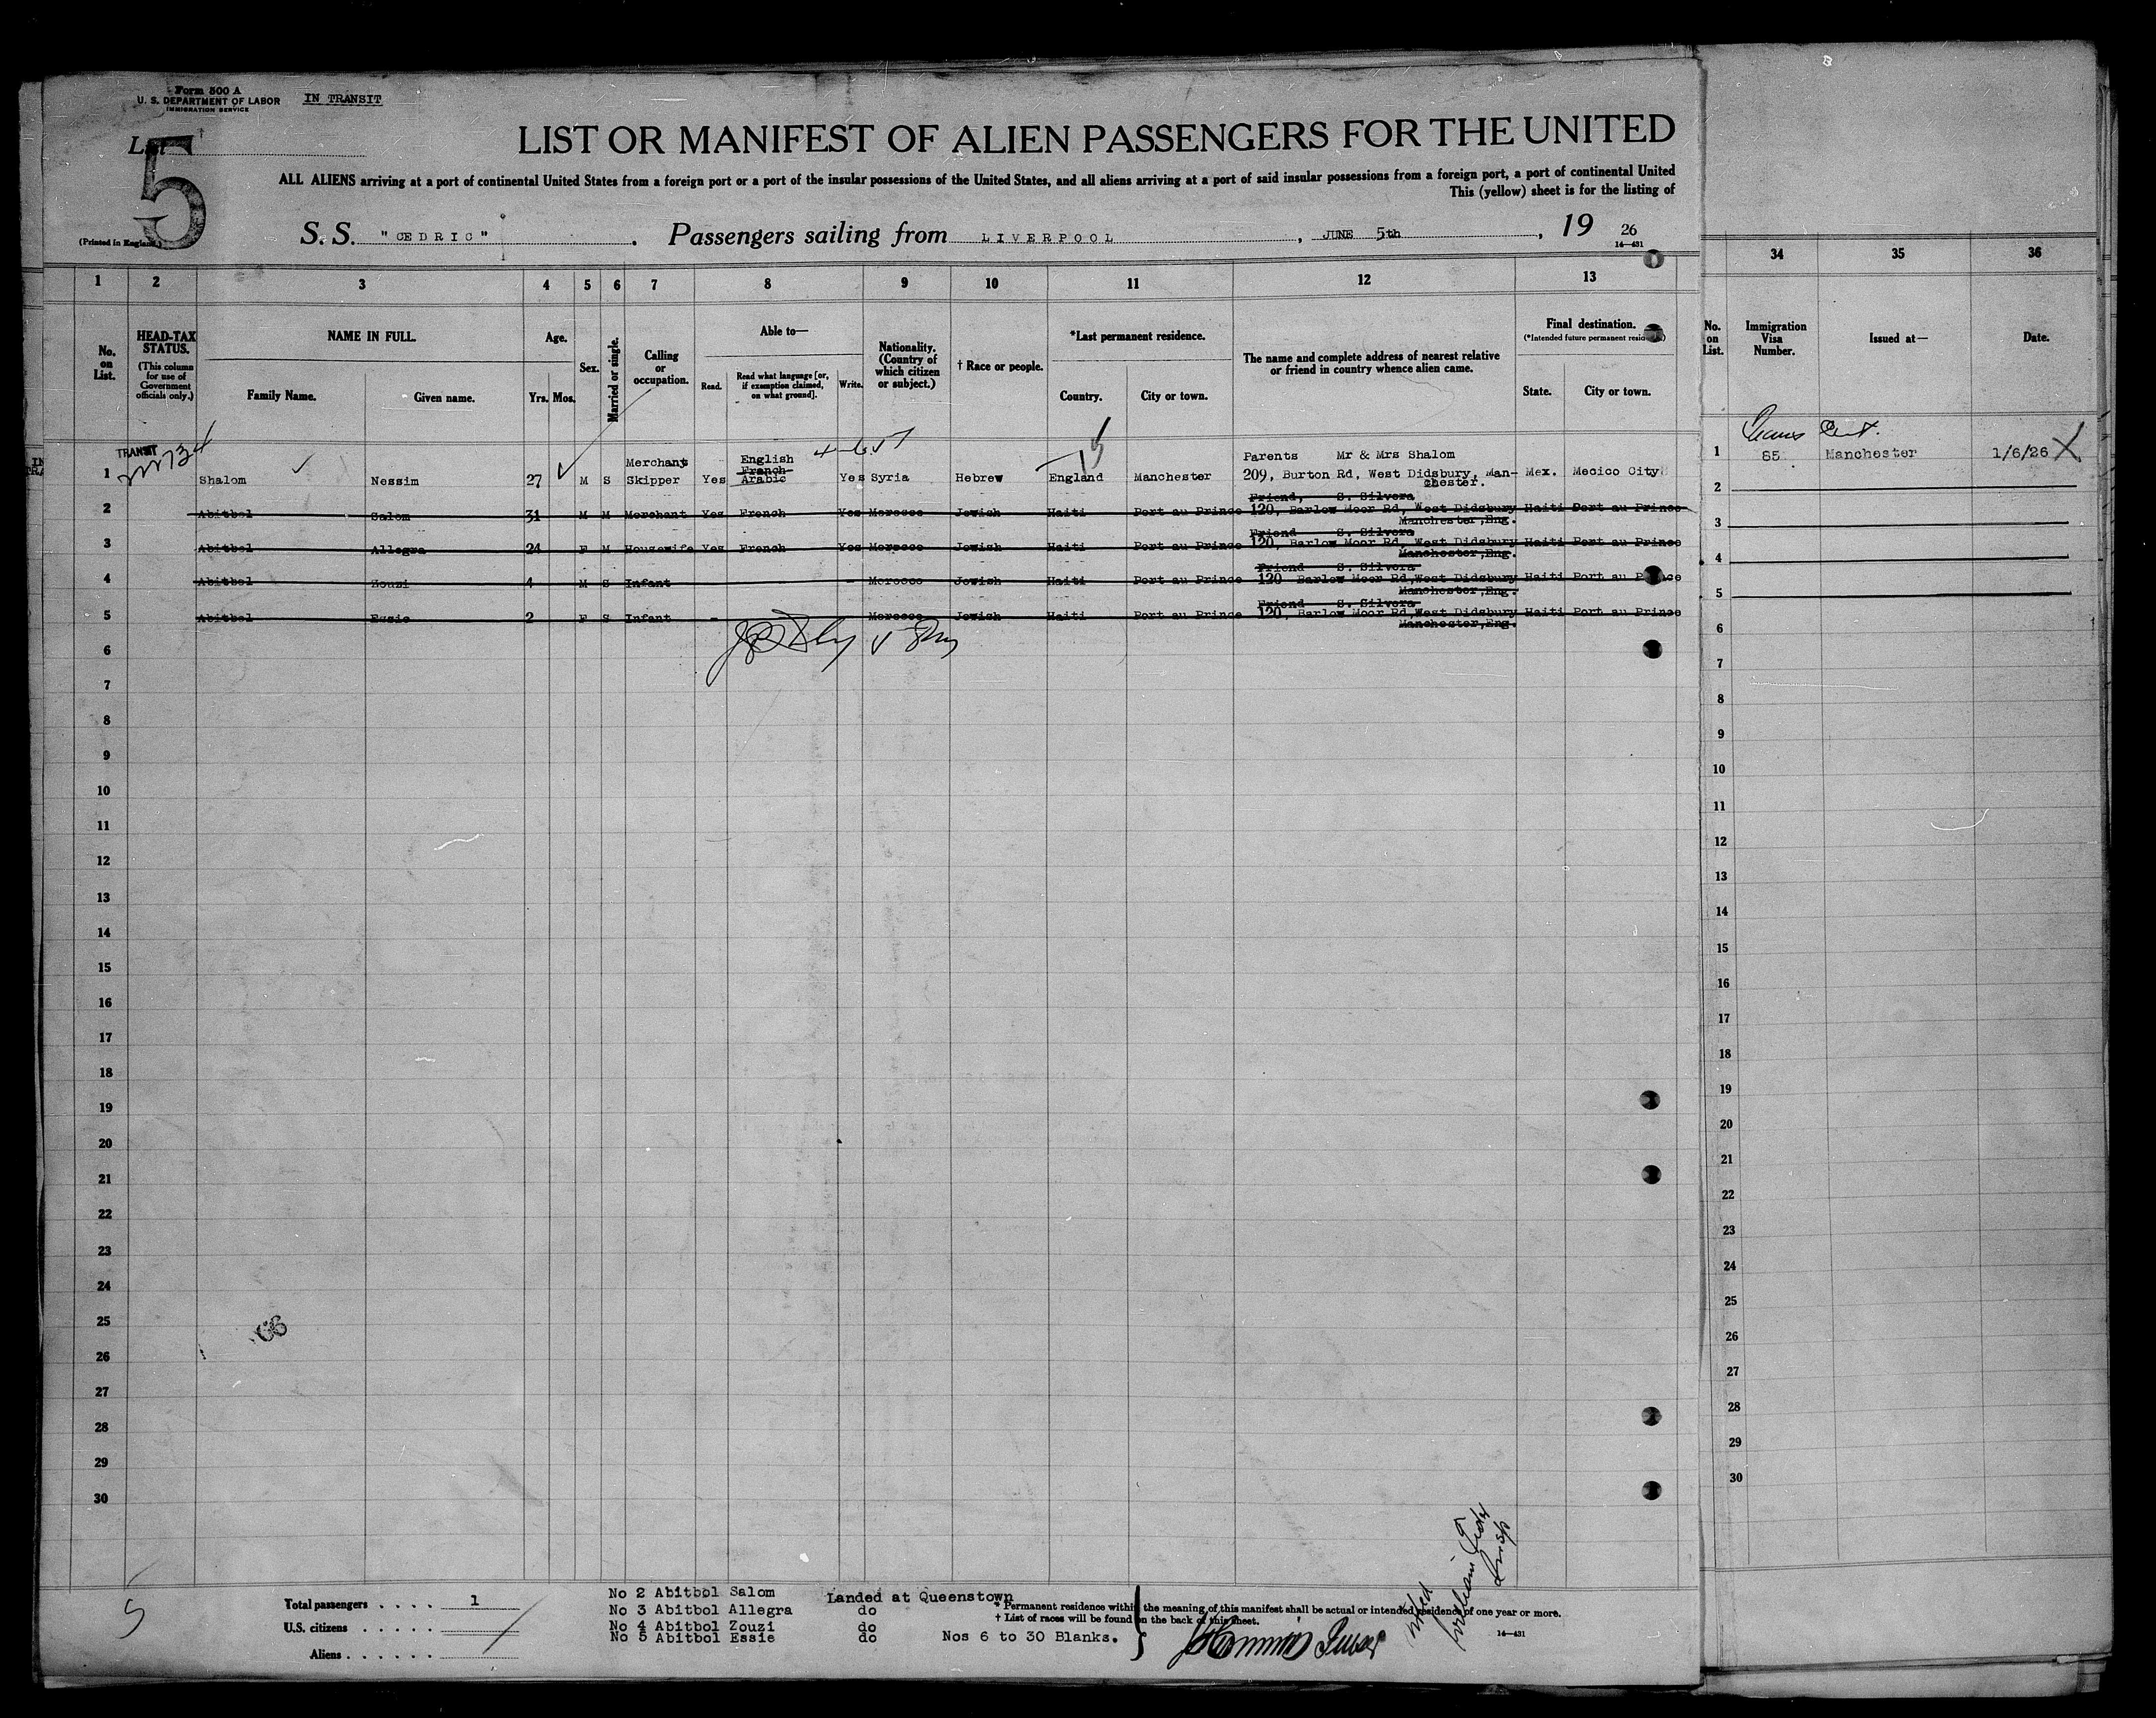 Form 500 A
U. S. DEPARTMENT OF LABOR
IMMIGRATION SERVICE
IN TRANSIT
List
5
LIST OR MANIFEST OF ALIEN PASSENGERS FOR THE UNITED
ALL ALIENS arriving at a port of continental United States from a foreign port or a port of the insular possessions of the United States, and all aliens arriving at a port of said insular possessions from a foreign port, a port of continental United
This (yellow) sheet is for the listing of
(Printed in England.)
S. S. "CEDRIC". Passengers sailing from LIVERPOOL, JUNE 5th, 19 26
14—431
1 2 3 4 5 6 7 8 9 10 11 12 13 34 35 36
No. on List.
HEAD-TAX STATUS.
(This column for use of Government officials only.)
NAME IN FULL.
Family Name. Given name.
Age.
Yrs. Mos.
Sex.
Married or single.
Calling or occupation.
Able to—
Read. Read what language [or, if exemption claimed, on what ground]. Write.
Nationality. (Country of which citizen or subject.)
† Race or people.
*Last permanent residence.
Country. City or town.
The name and complete address of nearest relative or friend in country whence alien came.
Final destination.
(*Intended future permanent residence)
State. City or town.
No. on List.
Immigration Visa Number.
Issued at—
Date.
TRANSIT
1 Shalom Nessim 27 M S Merchants Skipper Yes English French Arabic Yes Syria Hebrew England Manchester Parents Mr & Mrs Shalom 209, Burton Rd, West Didsbury, Man-chester. Mex. Mecico City
1 85 Manchester 1/6/26
2 Abitbol Salom 31 M M Merchant Yes French Yes Morocco Jewish Haiti Port au Prince Friend, S. Silvera 120, Barlow Moor Rd, West Didsbury Manchester,Eng. Haiti Port au Prince
3 Abitbol Allegra 24 F M Housewife Yes French Yes Morocco Jewish Haiti Port au Prince Friend S. Silvera 120, Barlow Moor Rd, West Didsbury Manchester,Eng. Haiti Port au Prince
4 Abitbol Zouzi 4 M S Infant - Morocco Jewish Haiti Port au Prince Friend S. Silvera 120 Barlow Moor Rd,West Didsbury Manchester,Eng. Haiti Port au Prince
5 Abitbol Essie 2 F S Infant - Morocco Jewish Haiti Port au Prince Friend S. Silvera 120, Barlow Moor Rd,West Didsbury Manchester,Eng. Haiti Port au Prince
2
3
4
5
6 6
7 7
8 8
9 9
10 10
11 11
12 12
13 13
14 14
15 15
16 16
17 17
18 18
19 19
20 20
21 21
22 22
23 23
24 24
25 25
26 26
27 27
28 28
29 29
30 30
Total passengers . . . . 1
U.S. citizens . . . . .
Aliens . . . . . .
No 2 Abitbol Salom Landed at Queenstown
No 3 Abitbol Allegra do
No 4 Abitbol Zouzi do
No 5 Abitbol Essie do Nos 6 to 30 Blanks.
* Permanent residence within the meaning of this manifest shall be actual or intended residence of one year or more.
† List of races will be found on the back of this sheet.
14—431